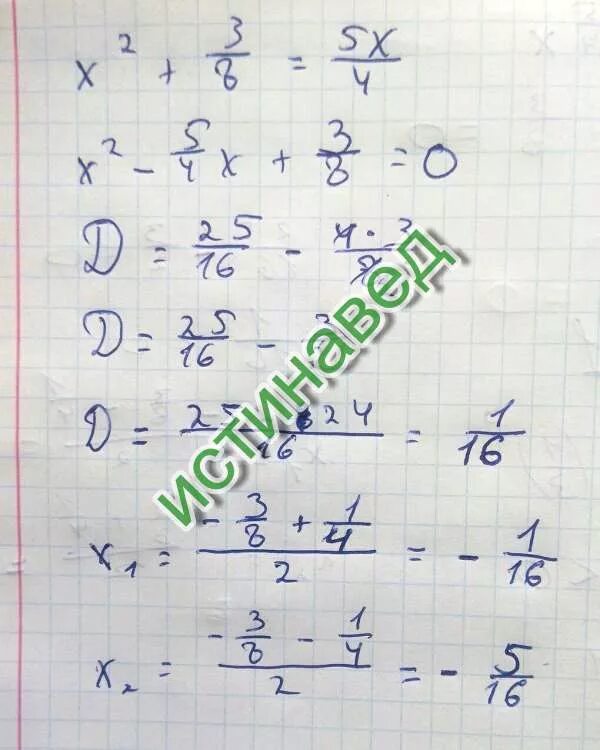 x² + 3/8 = 5x/4
x² - 5/4 x + 3/8 = 0
D = 25/16 - 4·3/8
D = 25/16 - 3
D = 25 24/16 = 1/16
x₁ = (-3/8 + 1/4)/2 = - 1/16
x₂ = (-3/8 - 1/4)/2 = - 5/16
истинавед